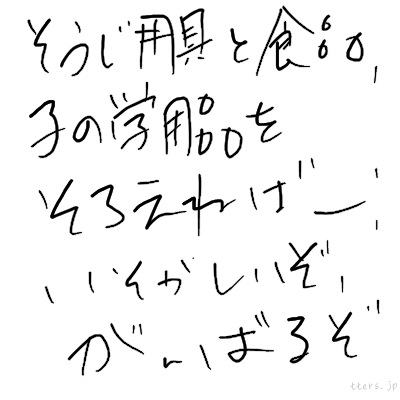 そうじ用具と食品、
子の学用品を
そろえねばー、
いそがしいぞ、
がんばるぞ
tters.jp